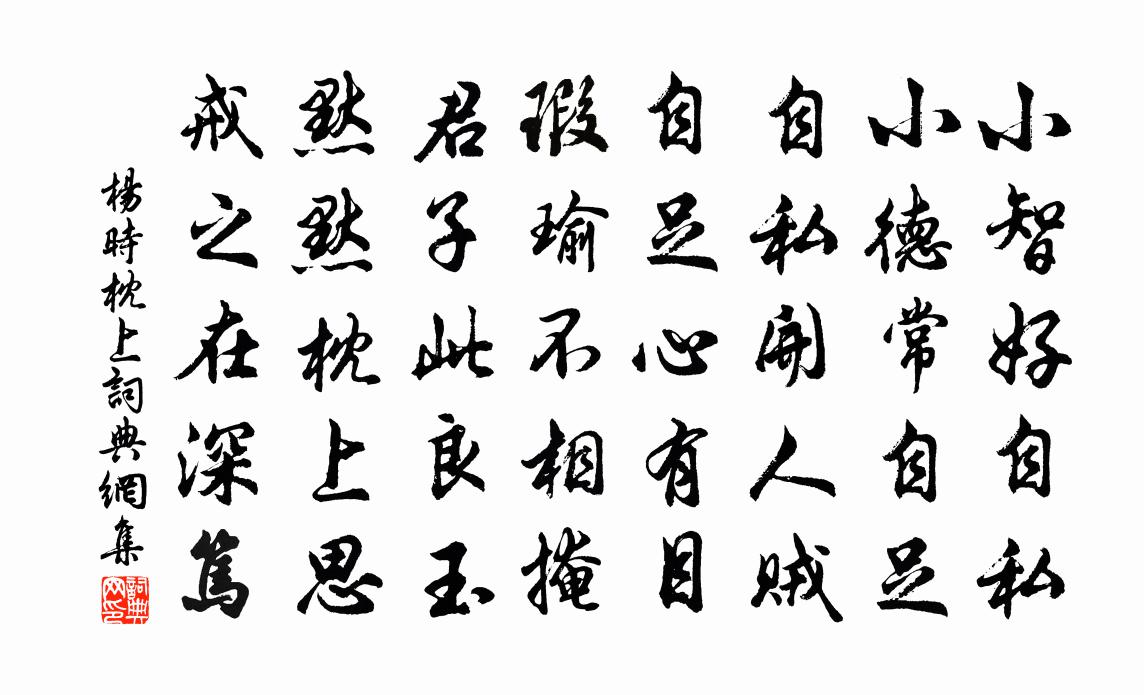 小智好自私
小德常自足
自私開人賊
自足心有目
瑕瑜不相掩
君子此良玉
默默枕上思
戒之在深篤
楊時枕上詞典網集
詞典網印